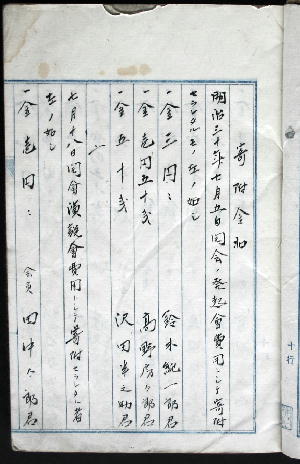 寄附金
明治三十年七月五日同会ノ発起會費用トシテ寄附
セラレタルモノ左ノ如シ
一金三円 鈴木 一郎君
一金壱円五十 高野房太郎君
一金五十 沢田半之助君
七月十八日同会演説會費用トシテ寄附セラレタル者
左ノ如シ
一金壱円 会員 田中太郎君
十行